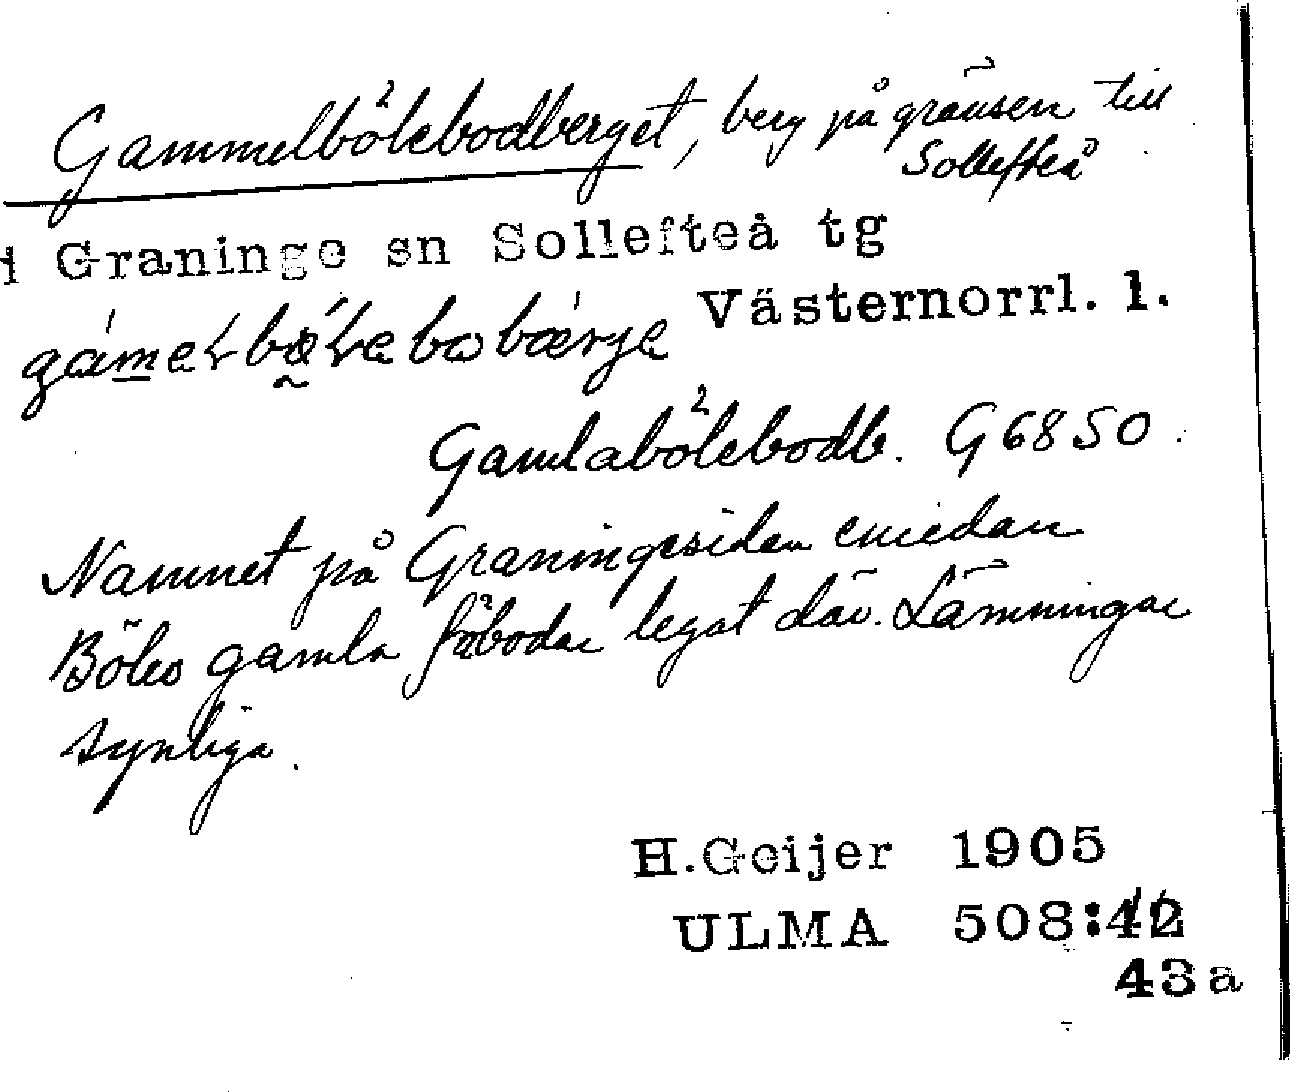 Gammelbölebodberget, berg på gränsen till
Sollefteå
i Graninge sn Sollefteå tg
Västernorrl. l.
Gamlabölebodb. G6850
Namnet på Graningesidan emedan
Böles gamla fäbodar legat där. Lämningar
synliga.
H.Geijer 1905
ULMA 508:42
43a